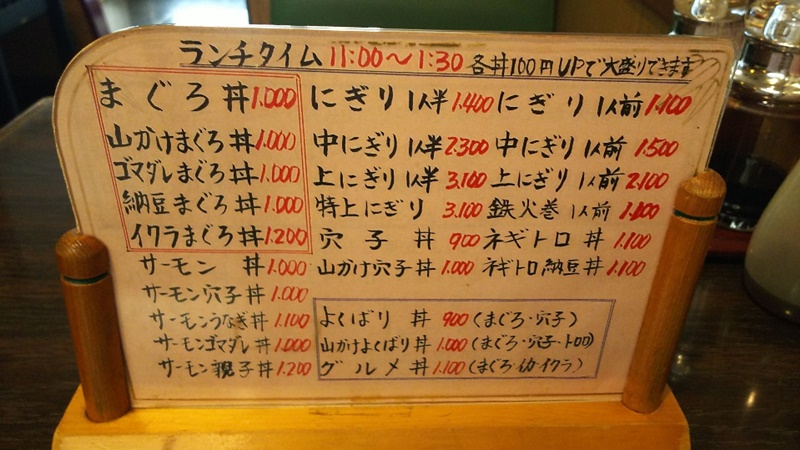 ランチタイム 11:00〜1:30 各丼100円UPで大盛りできます
まぐろ丼 1.000
山かけまぐろ丼 1.000
ゴマダレまぐろ丼 1.000
納豆まぐろ丼 1.000
イクラまぐろ丼 1.200
サーモン 丼 1.000
サーモン穴子丼 1.000
サーモンうなぎ丼 1.100
サーモンゴマダレ丼 1.000
サーモン親子丼 1.200
にぎり 1人半 1.400
中にぎり 1人半 2.300
上にぎり 1人半 3.100
特上にぎり 3.100
穴子丼 900
山かけ穴子丼 1.000
にぎり 1人前 1.100
中にぎり 1人前 1.500
上にぎり 1人前 2.100
鉄火巻 1人前
ネギトロ丼 1.100
ネギトロ納豆丼 1.100
よくばり丼 900 (まぐろ・穴子)
山かけよくばり丼 1.000 (まぐろ・穴子・トロロ)
グルメ丼 1.100 (まぐろ・イカ・イクラ)